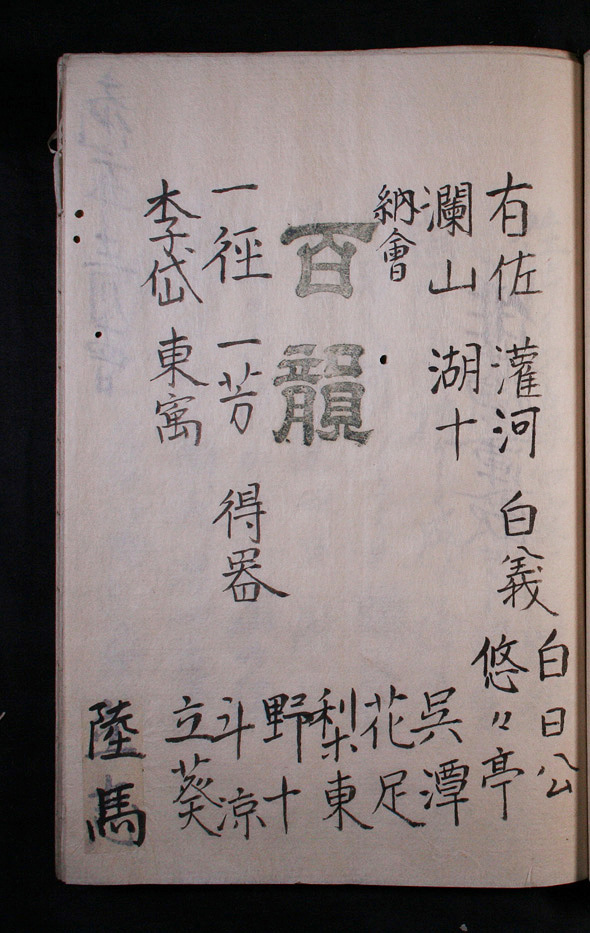 白日公
有佐 灌河 白義 悠々亭
瀾山 湖十 呉潭
納會 花足
百韻 梨東
野十
一徑 一芳 得器 斗涼
李岱 東寓 立葵
陸馬